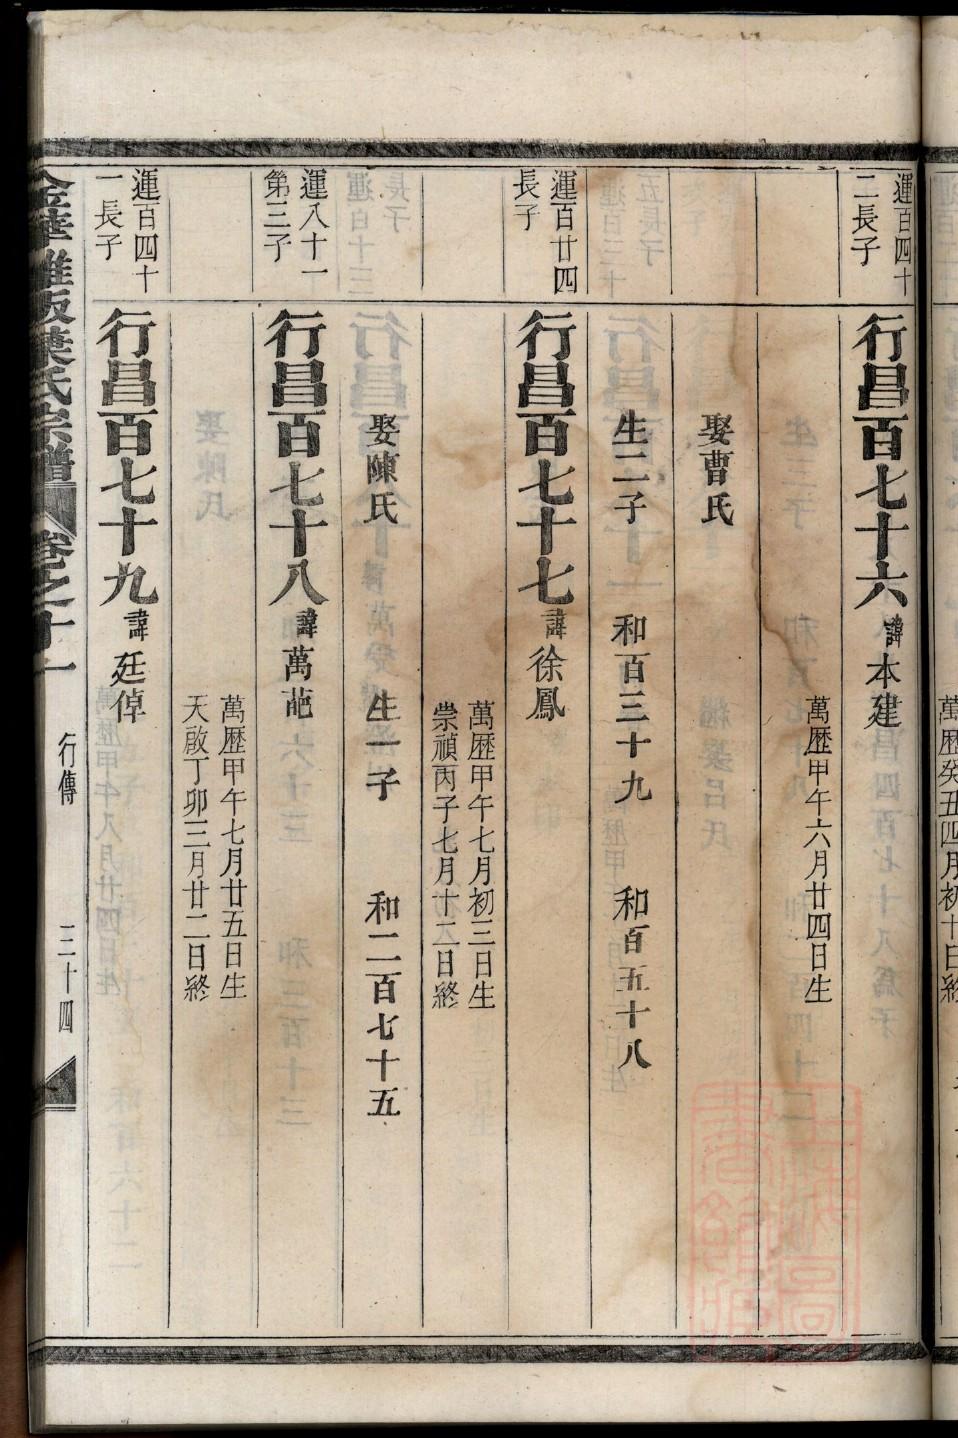 運百四十
二長子
行昌百七十六 諱本建
萬歷甲午六月廿四日生
娶曹氏
生二子 和百三十九 和百五十八
運百廿四
長子
行昌百七十七 諱徐鳳
萬歷甲午七月初三日生
崇禎丙子七月十二日終
娶陳氏 生一子 和二百七十五
運八十一
第三子
行昌百七十八 諱萬葩
萬歷甲午七月廿五日生
天啟丁卯三月廿二日終
運百四十
一長子
行昌百七十九 諱廷倬
葉氏宗譜 卷之十一 行傳 三十四